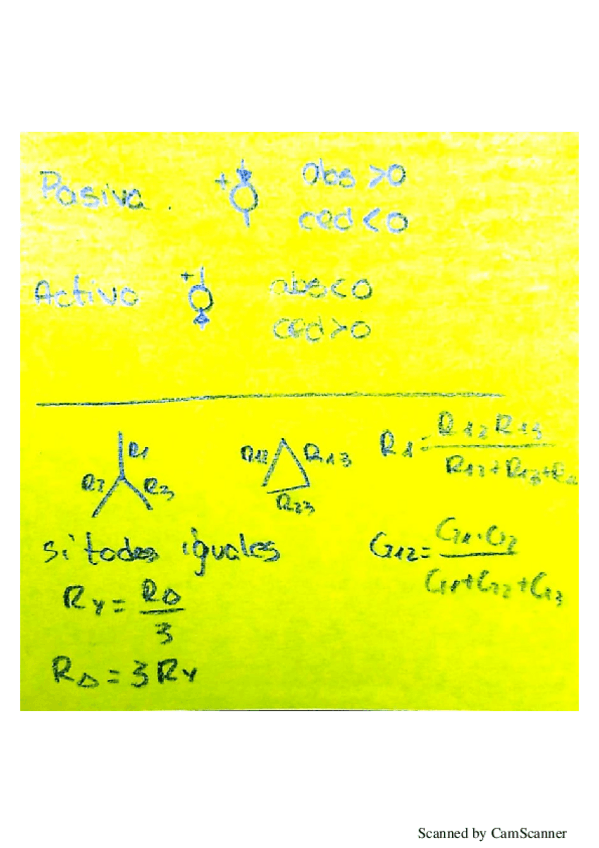 Pasiva. + abs >0
ced <0
Activo + abs<0
ced>0
R1
R2 R3
R12 R13
R23
R1= R12 R13 / R12+R13+R2
si todas iguales
RY = RΔ / 3
RΔ = 3RY
G12= G1·G2 / G1+G2+G3
Scanned by CamScanner